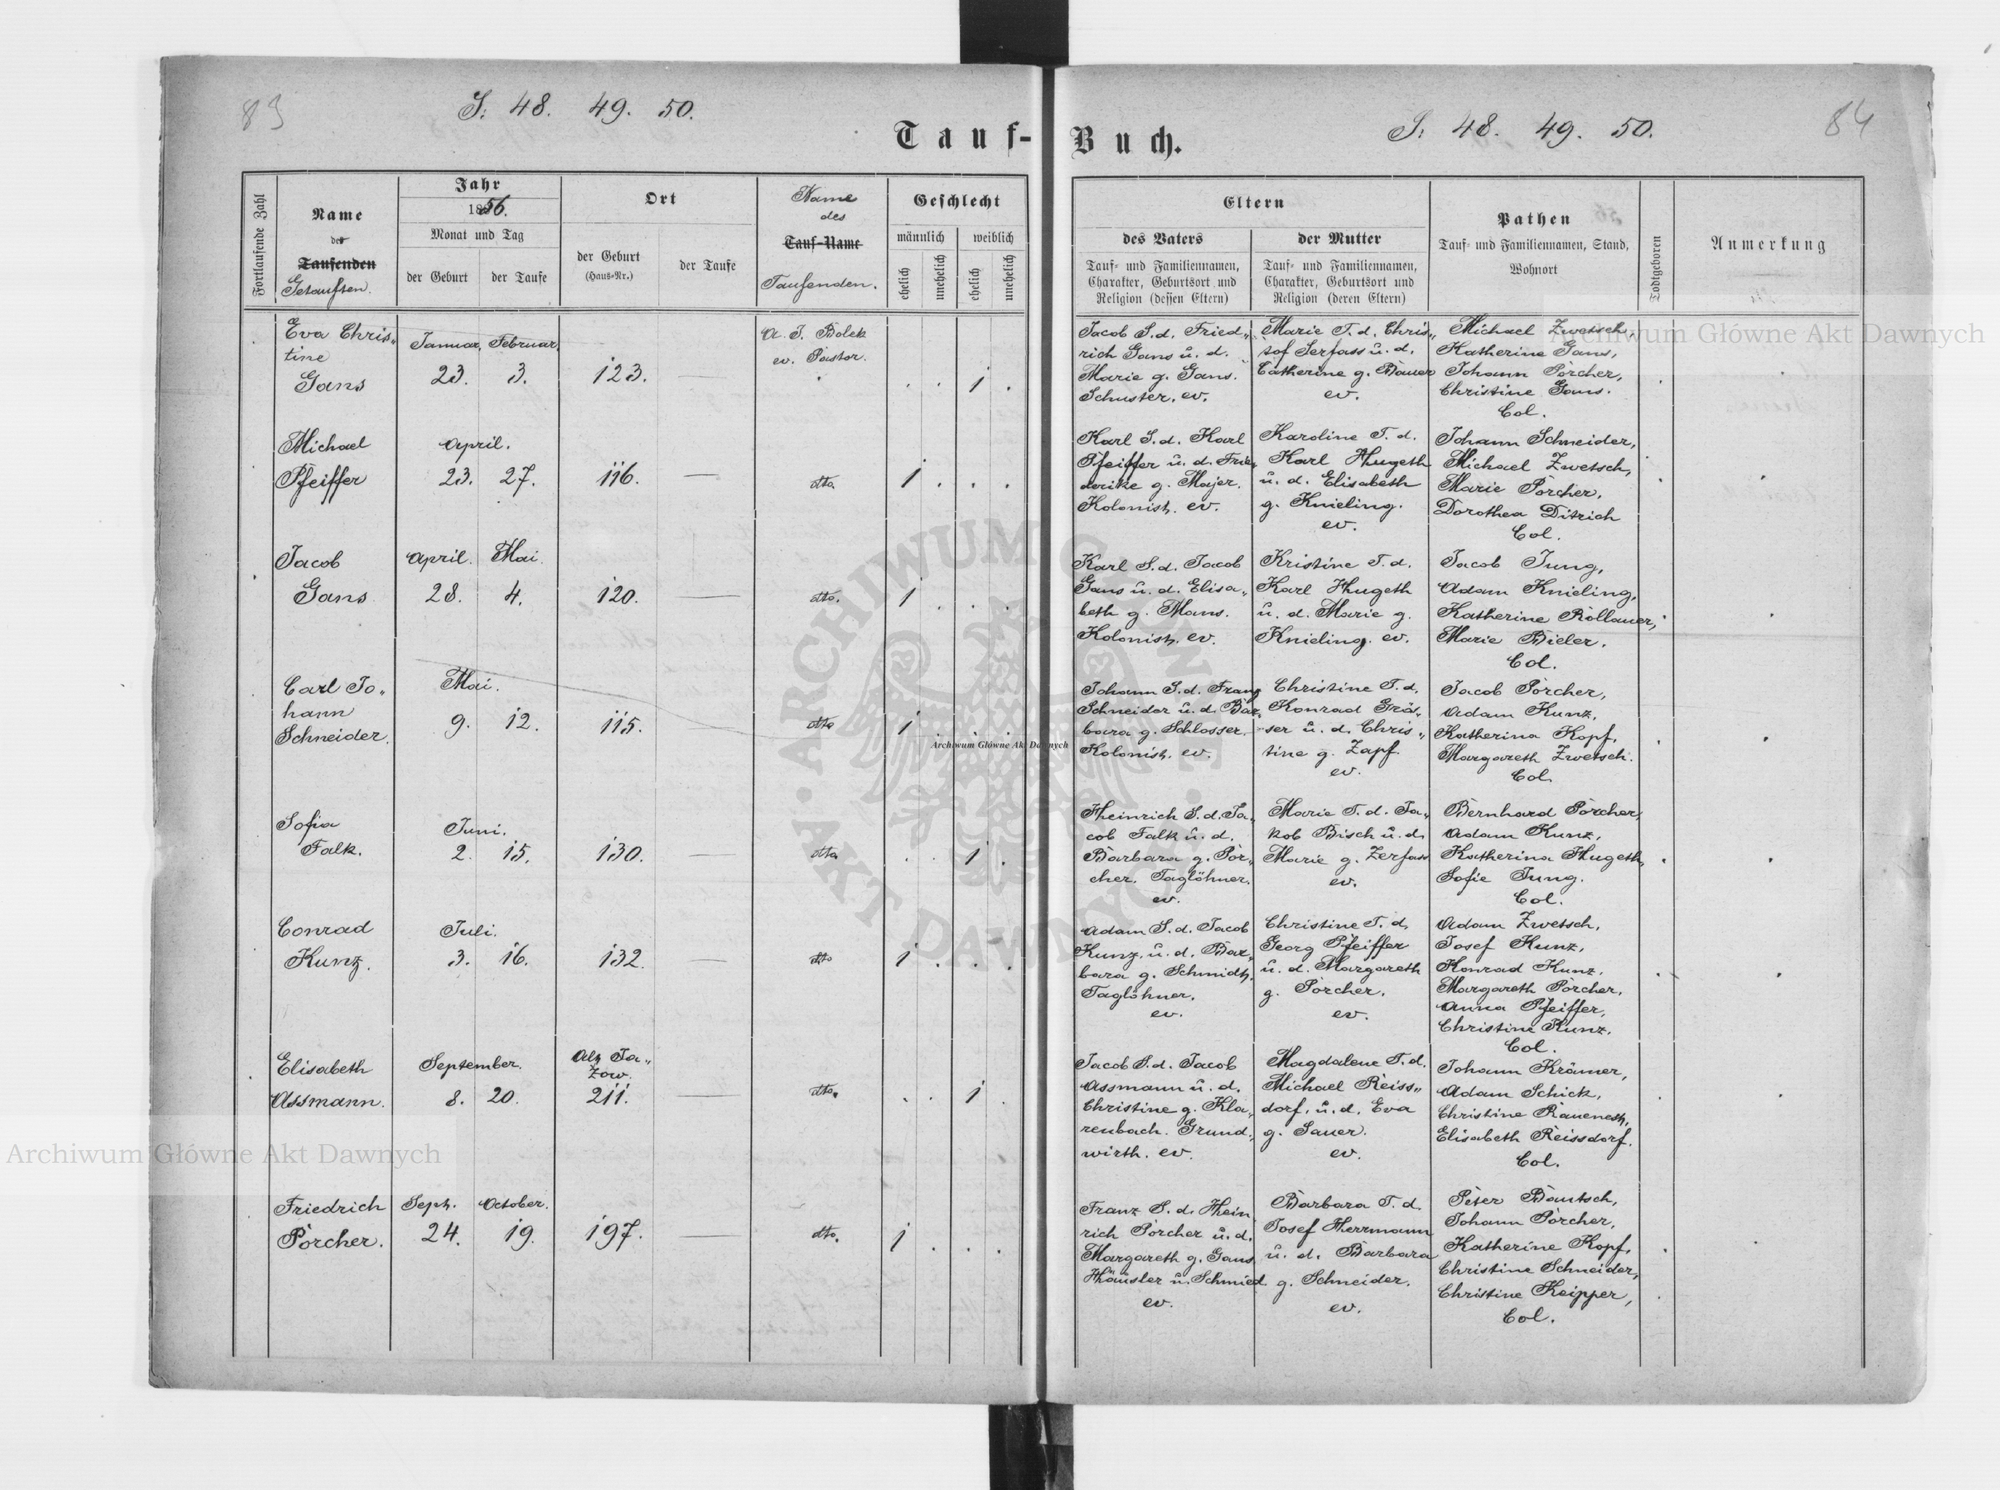 83
S: 48. 49. 50.
Tauf-
Fortlaufende Zahl
Name
des
Taufenden
Getauften.
Jahr
1856.
Monat und Tag
der Geburt
der Taufe
Ort
der Geburt
(Haus-Nr.)
der Taufe
Name
des
Tauf-Name
Taufenden.
Geschlecht
männlich
weiblich
ehelich
unehelich
ehelich
unehelich
Eva Chris„
tine
Gans
Januar, Februar,
23. 3.
123.
A. J. Bolek
ev. Pastor.
. . 1 .
Michael
Pfeiffer
April.
23. 27.
116.
—
dto.
1 . . .
Jacob
Gans
April. Mai.
28. 4.
120.
—
dto.
1 . . .
Carl Jo„
hann
Schneider.
Mai.
9. 12.
115.
—
dto
1 . . .
Sofia
Falk.
Juni.
2. 15.
130.
—
dto
. . 1 .
Conrad
Kunz.
Juli.
3. 16.
132.
—
dto
1 . . .
Elisabeth
Assmann.
September.
8. 20.
Alt Ja„
zow.
211.
—
dto.
. . 1 .
Friedrich
Porcher.
Sept. October.
24. 19.
197.
—
dto.
1 . . .
Buch.
S: 48. 49. 50.
84
Eltern
des Vaters
Tauf- und Familiennamen,
Charakter, Geburtsort und
Religion (dessen Eltern)
der Mutter
Tauf- und Familiennamen,
Charakter, Geburtsort und
Religion (deren Eltern)
Pathen
Tauf- und Familiennamen, Stand,
Wohnort
Todtgeboren
Anmerkung
Jacob S. d. Fried„
rich Gans u. d.
Marie g. Gans.
Schuster. ev.
Marie T. d. Chris„
tof Serfass u. d.
Catherine g. Bauer
ev.
Michael Zwetsch,
Katherine Gans,
Johann Porcher,
Christine Gans.
Col.
Karl S. d. Karl
Pfeiffer u. d. Frie„
derike g. Majer.
Kolonist. ev.
Karoline T. d.
Karl Hugeth
u. d. Elisabeth
g. Knieling.
ev.
Johann Schneider,
Michael Zwetsch,
Marie Porcher,
Dorothea Ditrich
Col.
Karl S. d. Jacob
Gans u. d. Elisa„
beth g. Mans.
Kolonist. ev.
Kristine T. d.
Karl Hugeth
u. d. Marie g.
Knieling. ev.
Jacob Jung,
Adam Knieling,
Katherine Rollauer,
Marie Bieler.
Col.
Johann S. d. Franz
Schneider u. d. Bar„
bara g. Schlosser.
Kolonist. ev.
Christine T. d.
Konrad Gräs„
ser u. d. Chris„
tine g. Zapf.
ev.
Jacob Porcher,
Adam Kunz,
Katherina Kopf,
Margareth Zwetsch.
Col.
Heinrich S. d. Ja„
cob Falk u. d.
Barbara g. Por„
cher. Taglöhner.
ev.
Marie T. d. Ja„
kob Bisch u. d.
Marie g. Zerfass
ev.
Bernhard Porcher,
Adam Kunz,
Katherina Hugeth,
Sofie Jung.
Col.
Adam S. d. Jacob
Kunz. u. d. Bar„
bara g. Schmidt.
Taglöhner.
ev.
Christine T. d.
Georg Pfeiffer
u. d. Margareth
g. Porcher.
ev.
Adam Zwetsch,
Josef Kunz,
Konrad Kunz,
Margareth Porcher,
Anna Pfeiffer,
Christine Kunz.
Col.
Jacob S. d. Jacob
Assmann u. d.
Christine g. Kla„
renbach. Grund„
wirth. ev.
Magdalene T. d.
Michael Reiss„
dorf. u. d. Eva
g. Sauer.
ev.
Johann Krämer,
Adam Schick,
Christine
Elisabeth Reissdorf.
Col.
Franz S. d. Hein
rich Porcher u. d.
Margareth g. Gans
Häusler u. Schmied.
ev.
Barbara T. d.
Josef Herrmann
u. d. Barbara
g. Schneider.
ev.
Peter Bautsch,
Johann Porcher,
Katherine Kopf,
Christine Schneider,
Christine Keipper,
Col.
Archiwum Główne Akt Dawnych
Archiwum Główne Akt Dawnych
Archiwum Główne Akt Dawnych